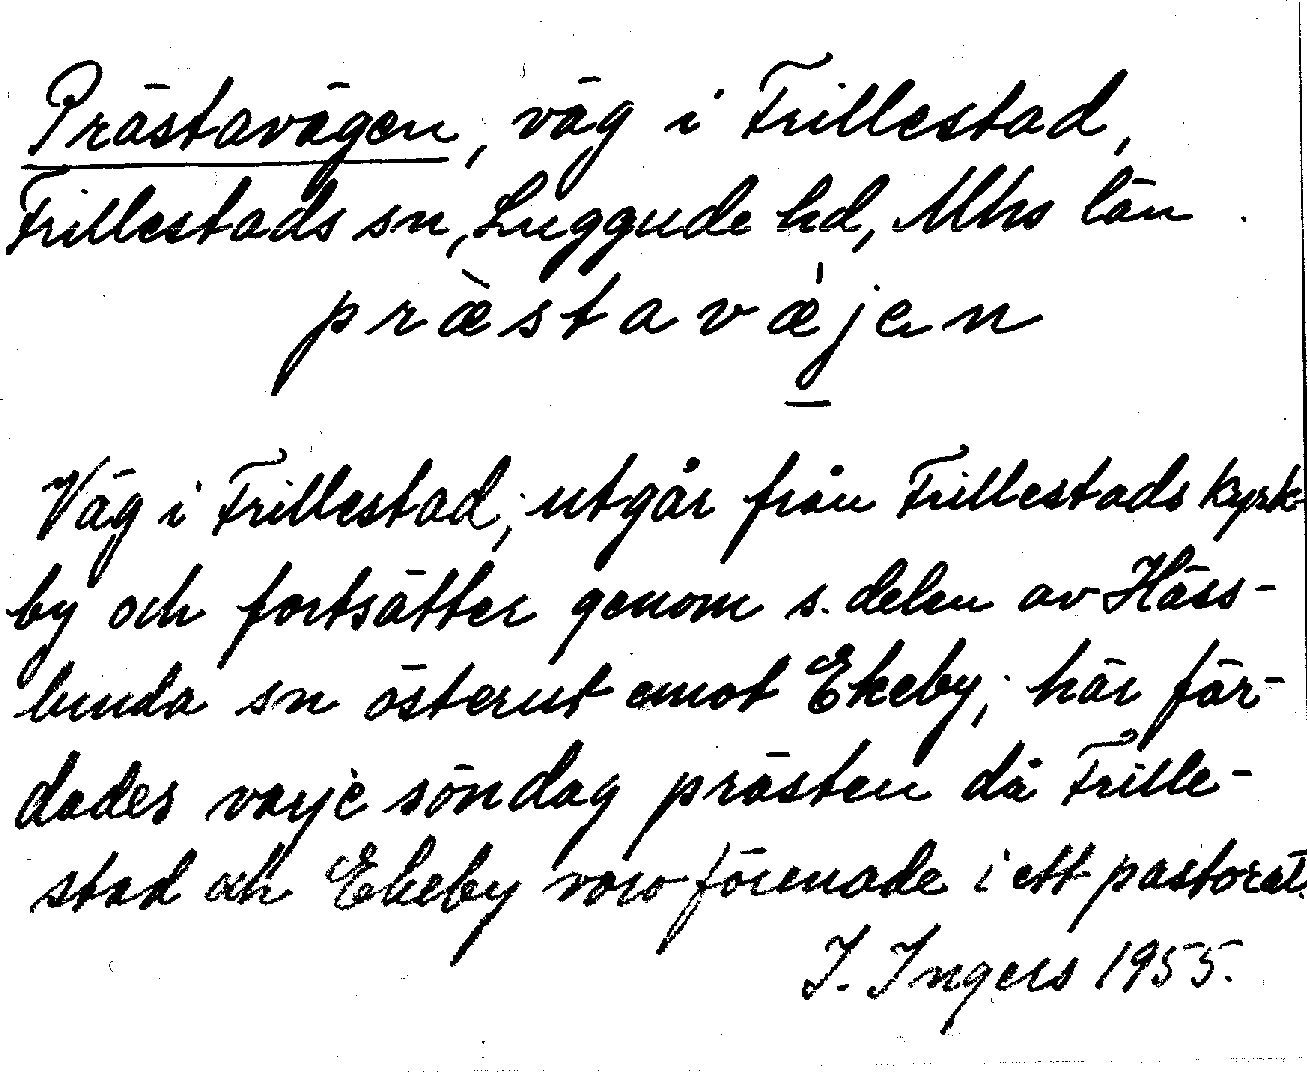 Prästavägen, väg i Frillestad,
Frillestads sn, Luggude hd, Mhs län
præ̀stavæ̍jen
Väg i Frillestad, utgår från Frillestads kyrk-
by och fortsätter genom s. delen av Häss-
lunda sn österut emot Ekeby; här fär-
dades varje söndag prästen då Frille-
stad och Ekeby voro förenade i ett pastorat.
I. Ingers 1955.